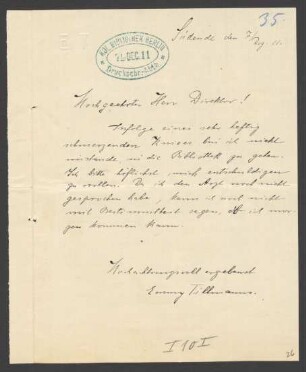 35.
Südende den 7/12 11.
KGL. BIBLIOTHEK BERLIN
11. DEC. 11
Hochgeehrter Herr Direktor!
Infolge eines sehr heftig
schmerzenden Knies bin ich nicht
imstande in die Bibliothek zu gehen.
Ich bitte höflichst, mich entschuldigen
zu wollen. Da ich den Arzt noch nicht
gesprochen habe, kann ich auch nicht
mit Bestimmtheit sagen, ob ich mor-
gen kommen kann.
Hochachtungsvoll ergebenst
Emmy Tillmanns.
I 10 I
26